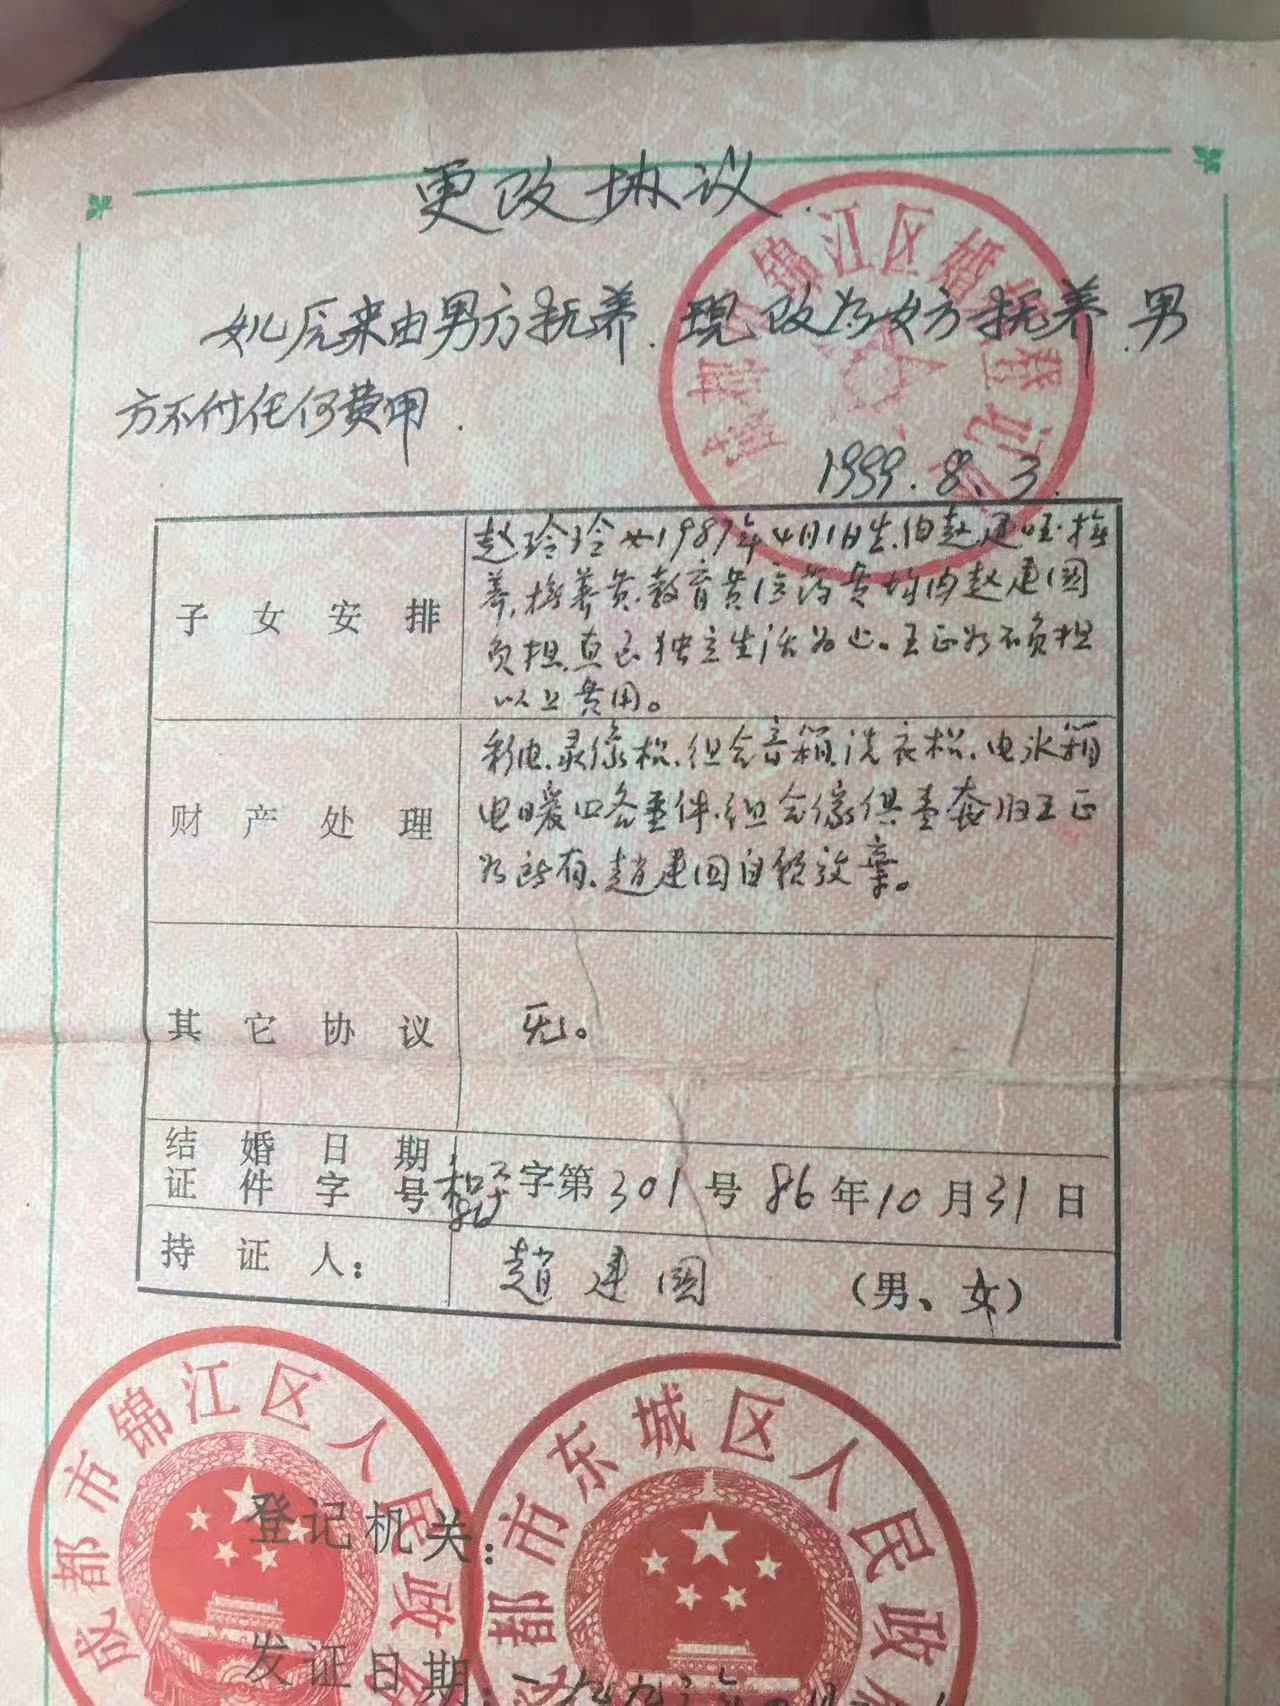 更改协议
女儿原来由男方抚养.现改为女方抚养.男
方不付任何费用.
1999.8.3.
成都市锦江区婚姻登记
子女安排
赵玲玲女1987年4月1日生,由赵建国抚
养,抚养费.教育费医药费均由赵建国
负担,直至独立生活为止。王正为不负担
以上费用。
财产处理
彩电.录像机.组合音箱.洗衣机.电冰箱
电暖四各壹件.组合傢俱壹套归王正
为所有.趙建国自愿放棄。
其它协议
无。
结婚日期
证件字号
字第301号 86年10月31日
持证人:
趙建國 (男、女)
成都市锦江区人民政
都市东城区人民政
登记机关:
发证日期: